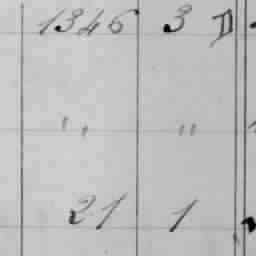 1346 3 D
" "
21 1